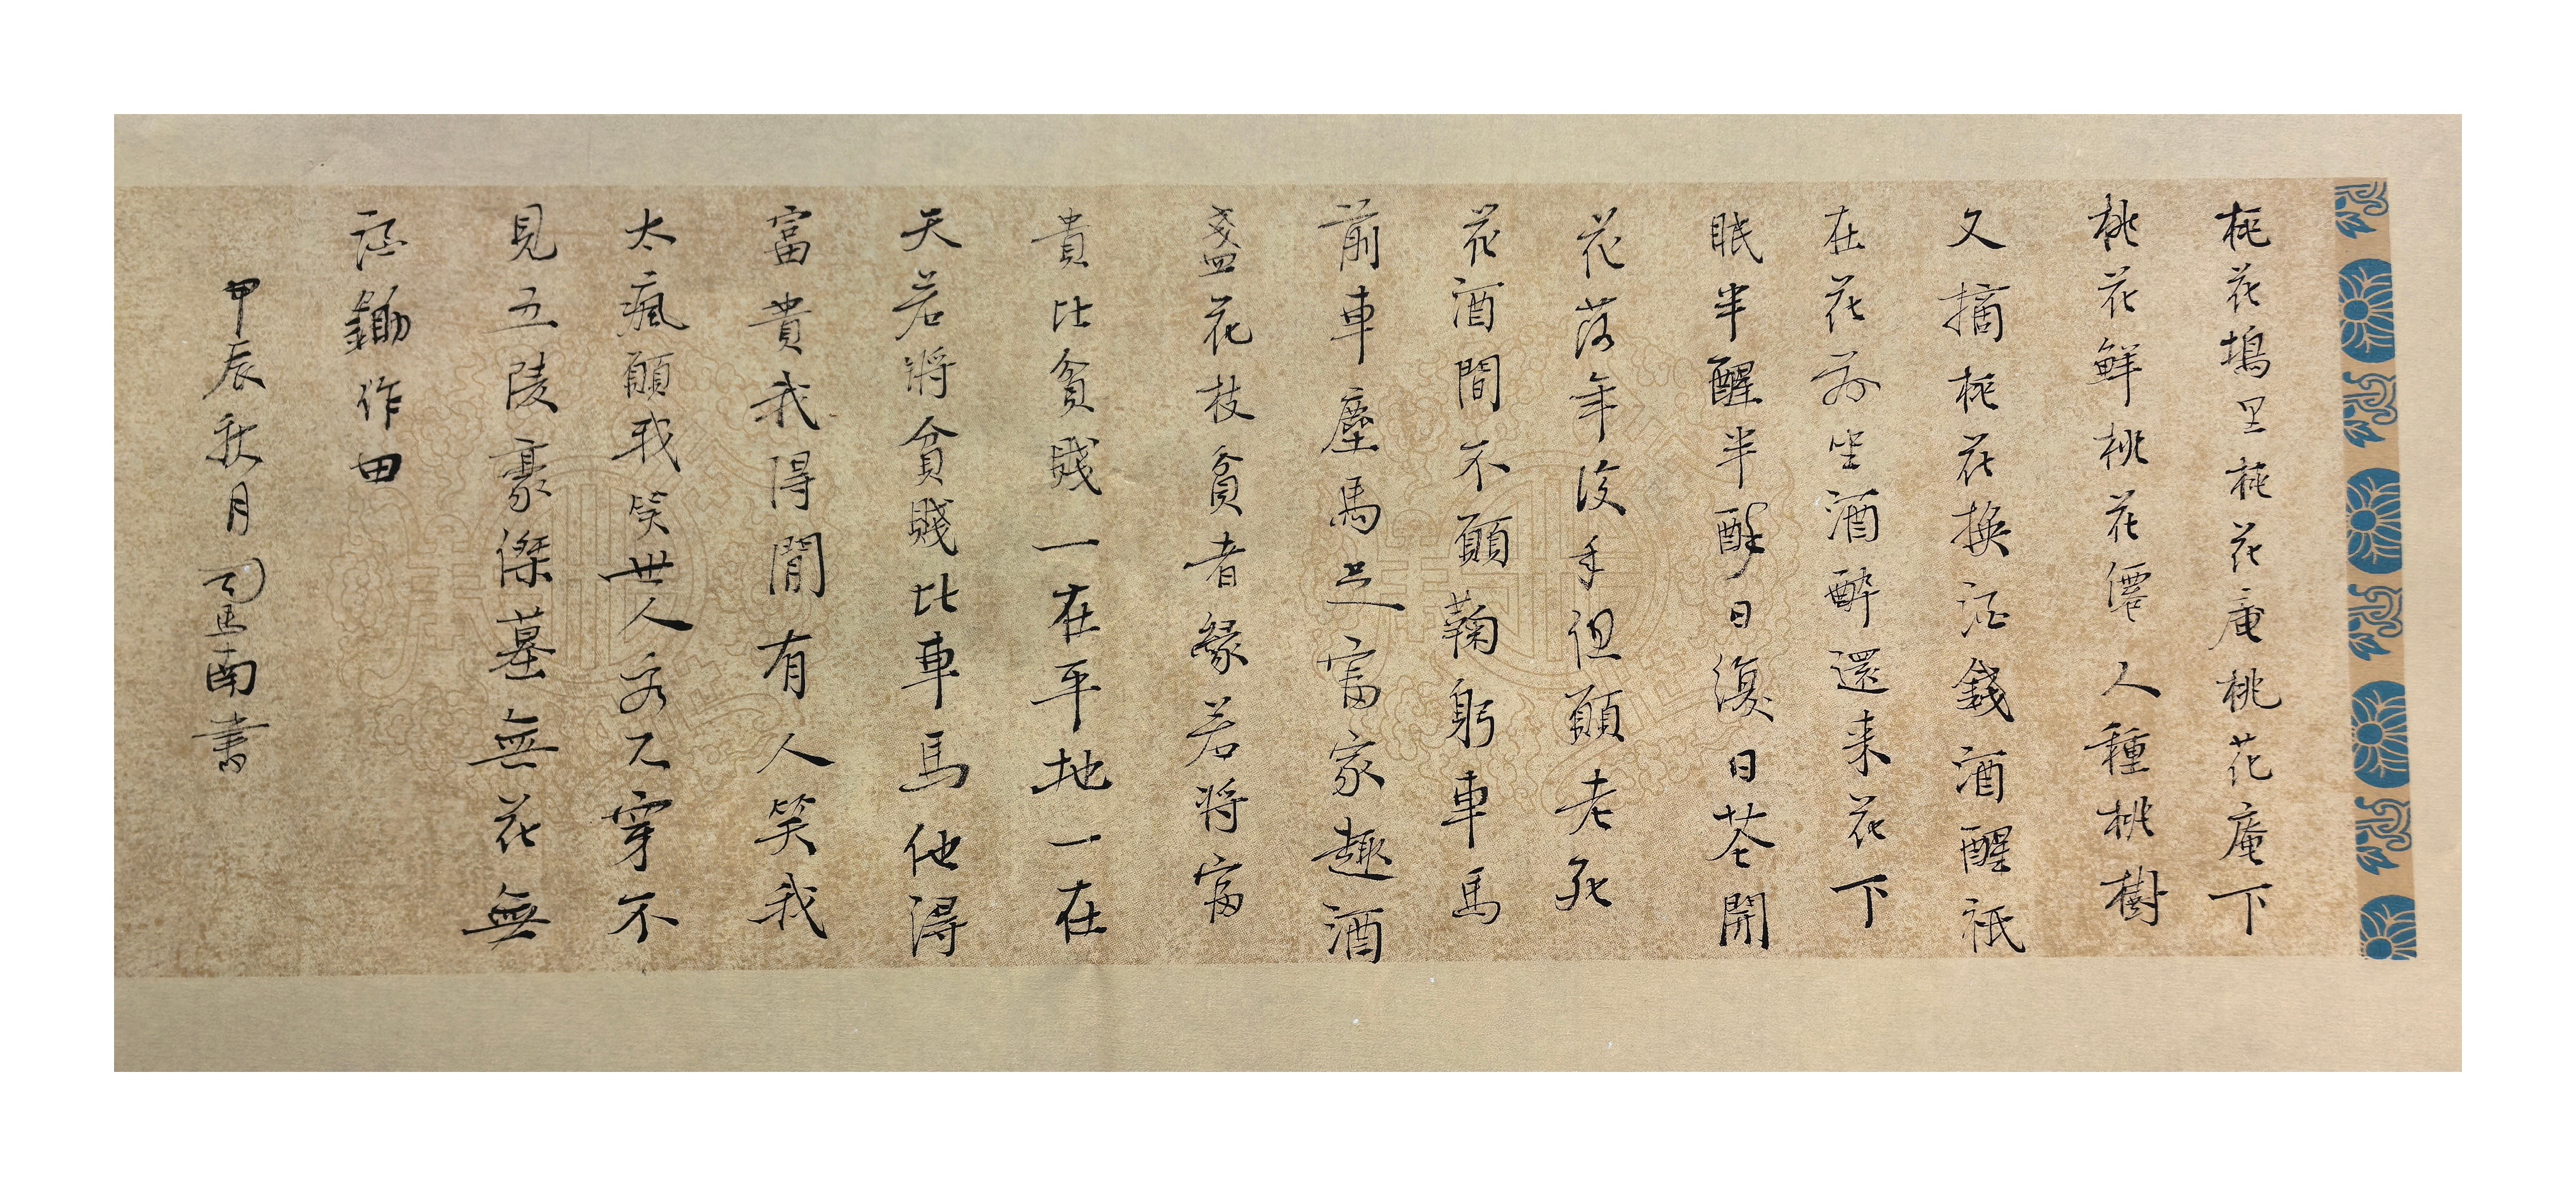 桃花塢里桃花庵桃花庵下
桃花鮮桃花僊人種桃樹
又摘桃花換酒錢酒醒祇
在花前坐酒醉還来花下
眠半醒半醉日復日花開
花落年復年但願老死
花酒間不願鞠躬車馬
前車塵馬足富家趣酒
盞花枝貧者緣若將富
貴比貧賤一在平地一在
天若將貧賤比車馬他得
富貴我得閒有人笑我
太瘋顛我笑世人看不穿不
見五陵豪傑墓無花無
酒鋤作田
甲辰秋月南書